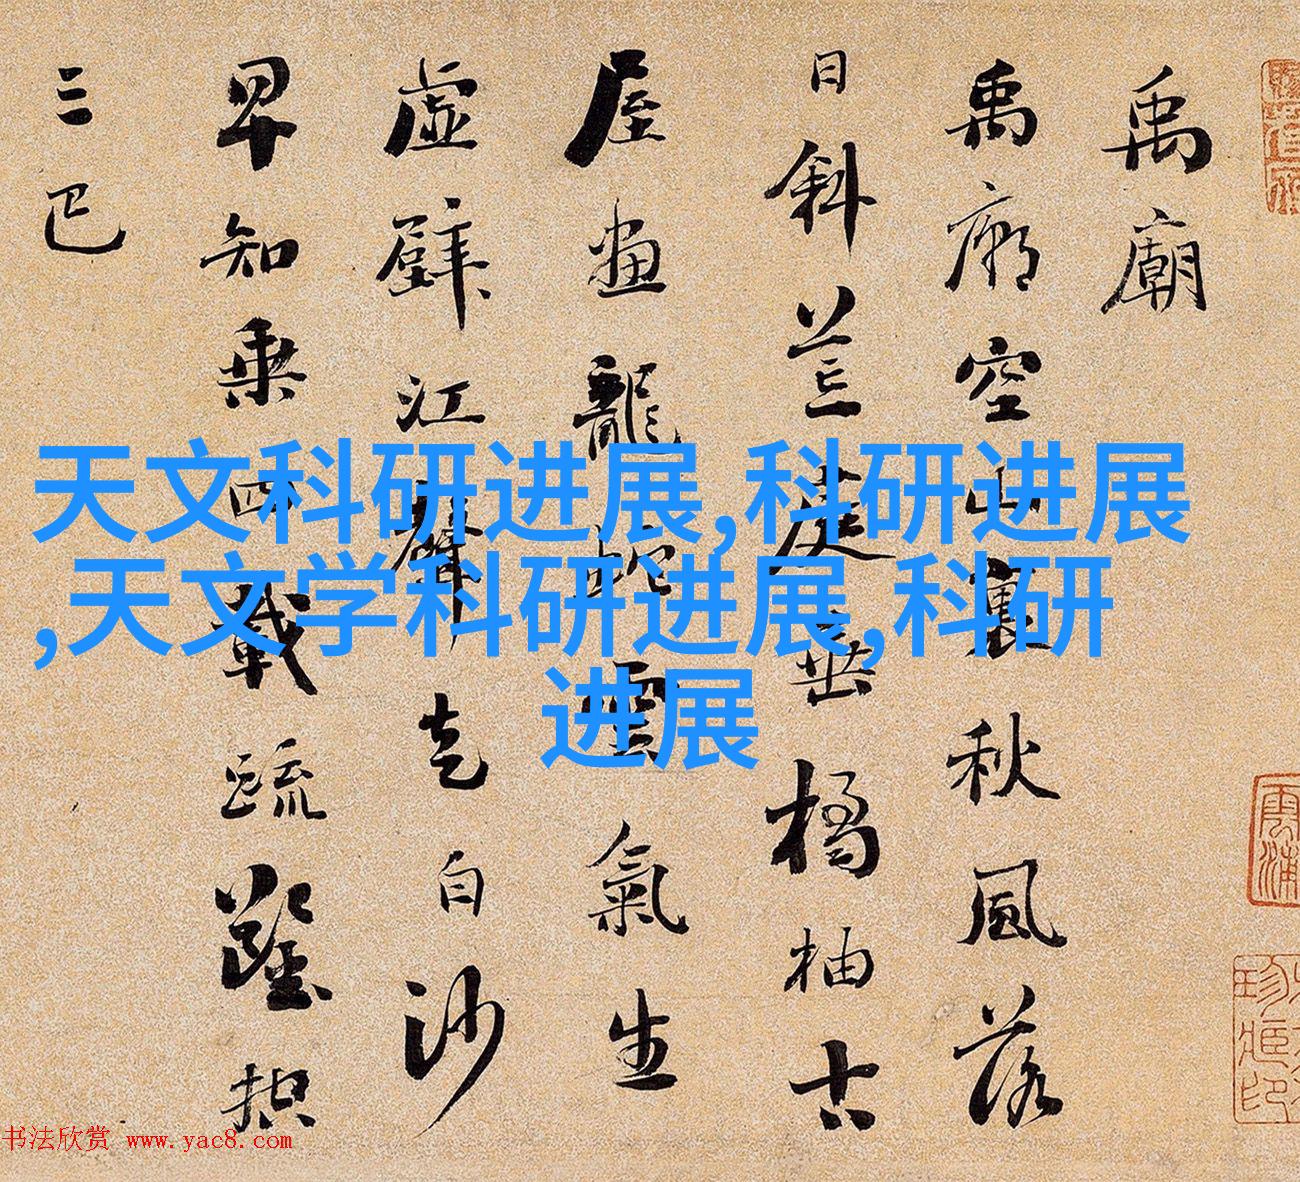 禹廟
禹廟空山裏秋風落
日斜荒庭垂橘柚古
屋畫龍蛇雲氣生
虛壁江聲走白沙
早知乘四載疏鑿控
三巴
天文科研进展,科研进展
,天文学科研进展,科研
进展
书法欣赏 www.yac8.com